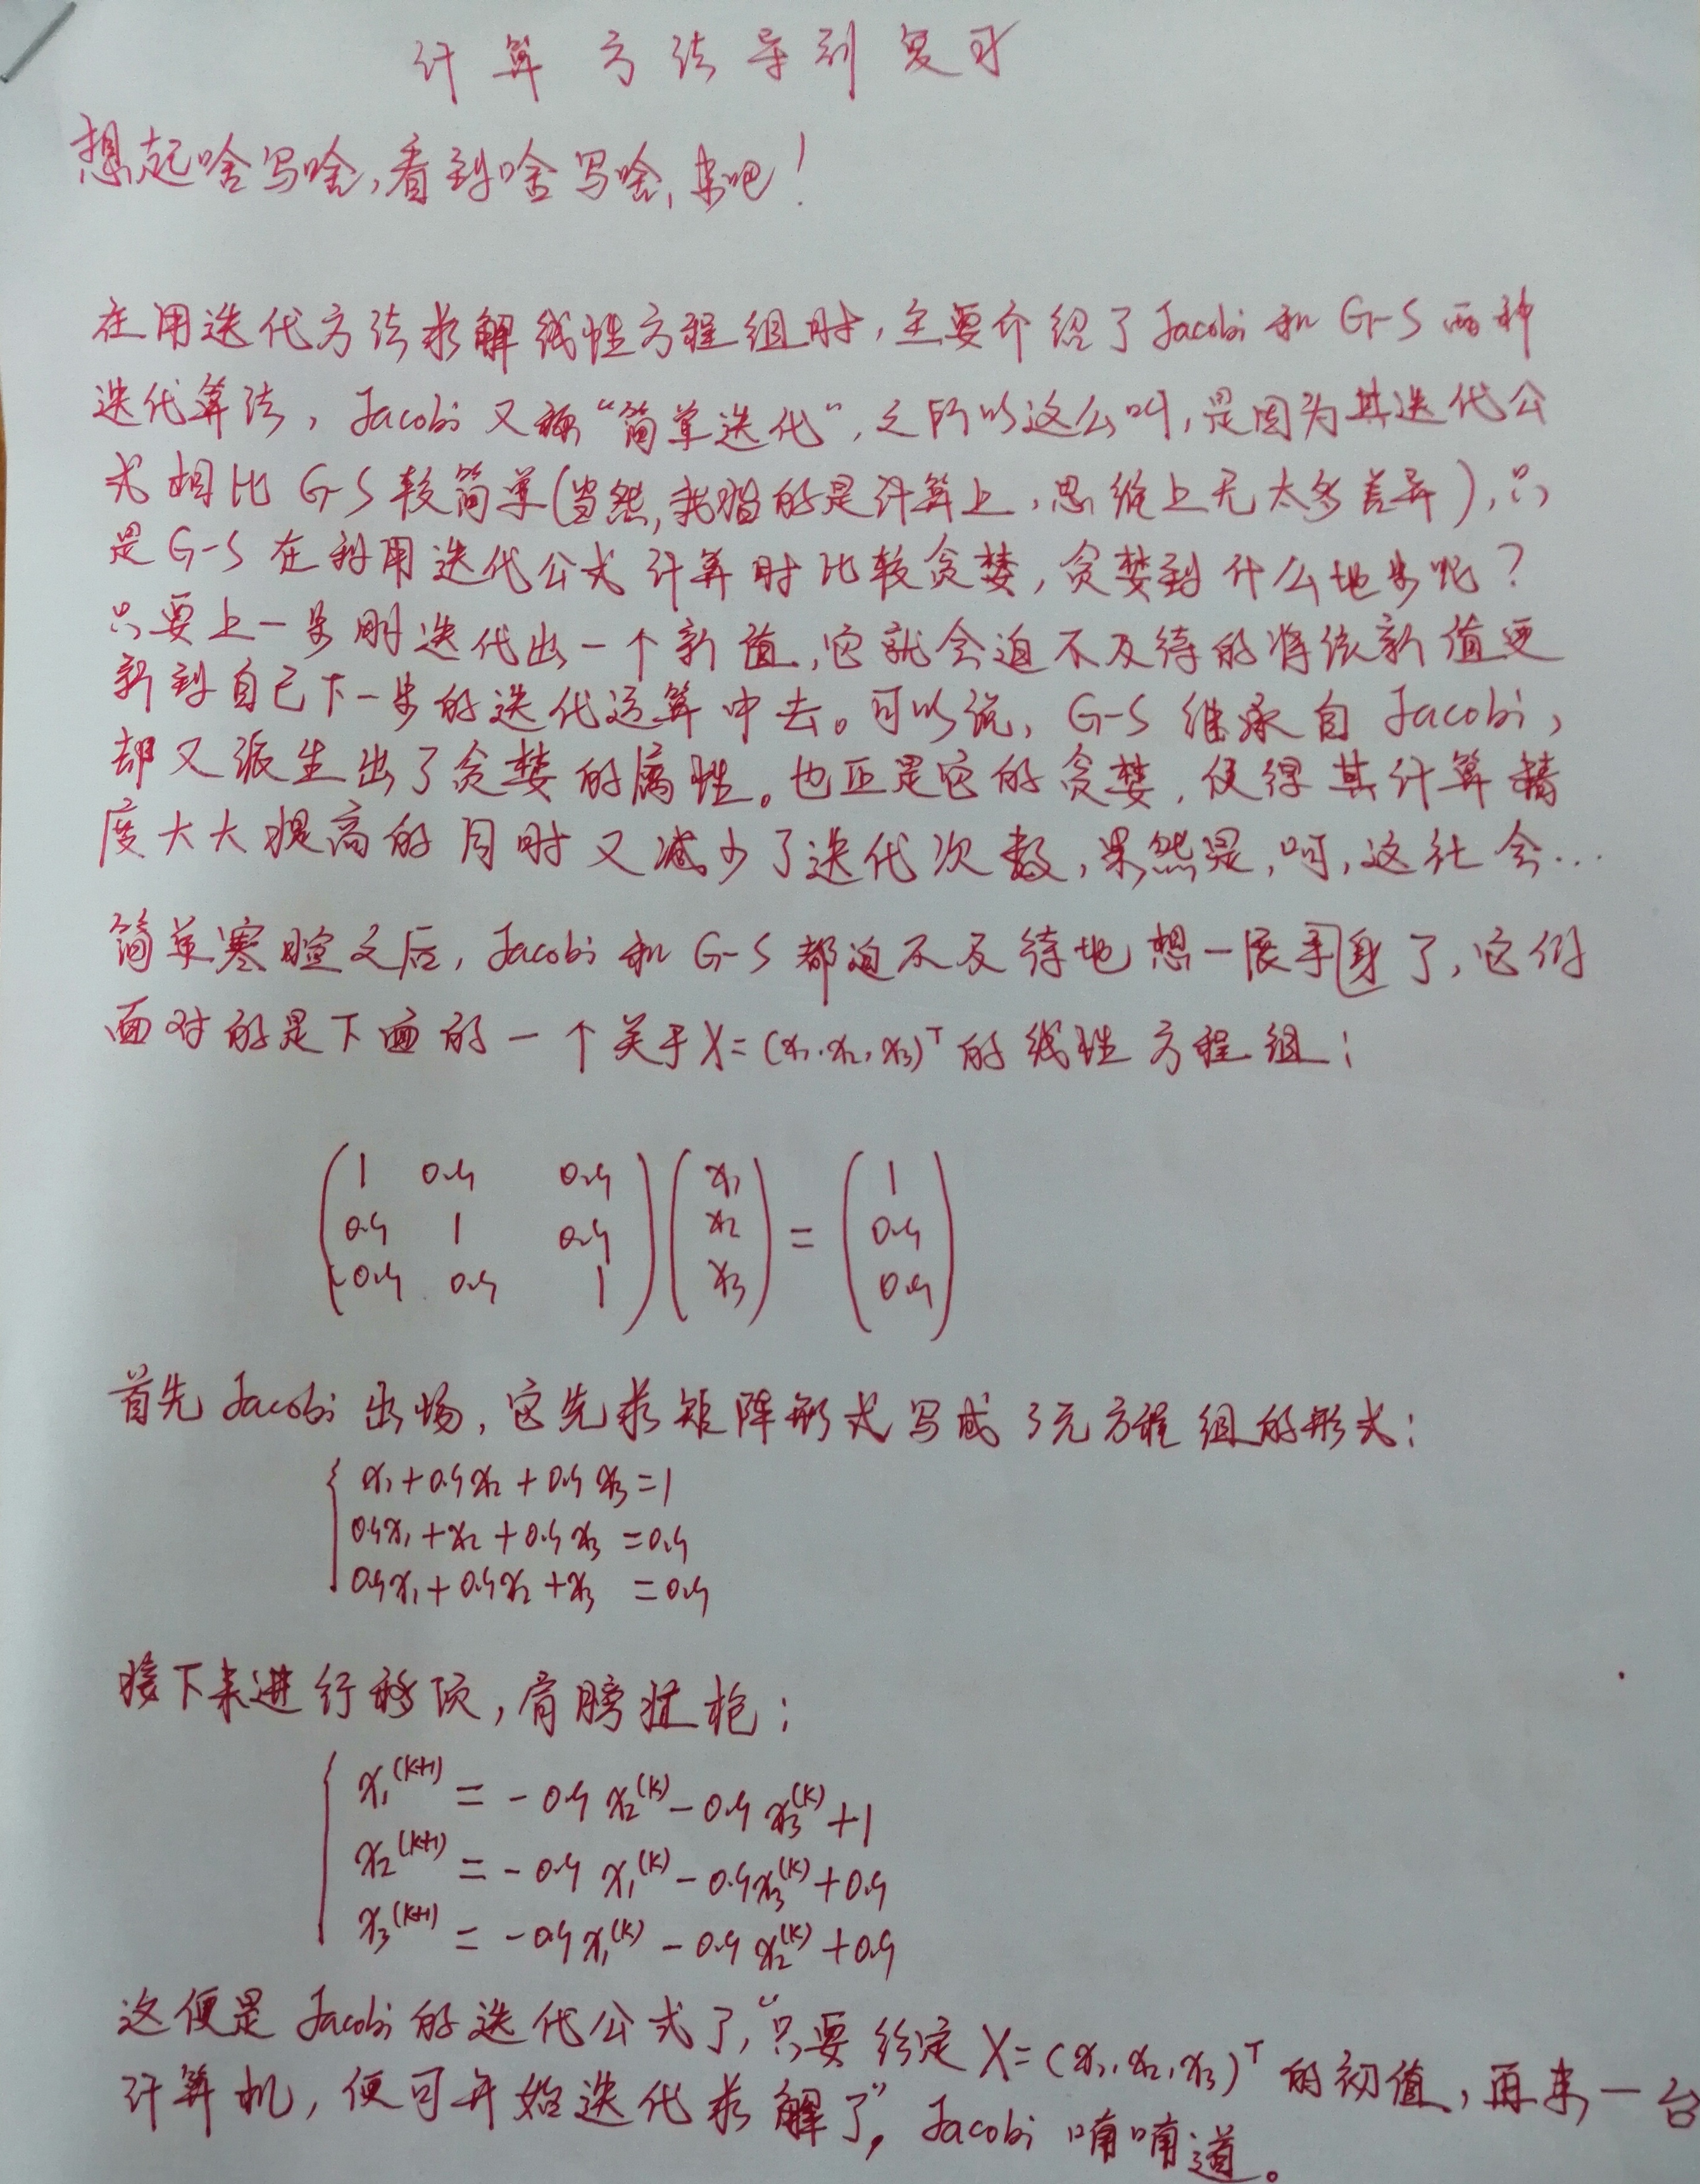 计算方法导引复习
想起啥写啥,看到啥写啥,来吧!
在用迭代方法求解线性方程组时,主要介绍了Jacobi和G-S两种
迭代算法,Jacobi又称“简单迭代”,之所以这么叫,是因为其迭代公
式相比G-S较简单(当然,我指的是计算上,思维上无太多差异),只
是G-S在利用迭代公式计算时比较贪婪,贪婪到什么地步呢?
只要上一步刚迭代出一个新值,它就会迫不及待的将该新值更
新到自己下一步的迭代运算中去。可以说,G-S继承自Jacobi,
却又派生出了贪婪的属性。也正是它的贪婪,使得其计算精
度大大提高的同时又减少了迭代次数,果然是,呵,这社会...
简单寒暄之后,Jacobi和G-S都迫不及待地想一展手身了,它们
面对的是下面的一个关于X=(x₁,x₂,x₃)ᵀ的线性方程组:
(1 0.4 0.4) (x₁) = (1)
(0.4 1 0.4) (x₂) (0.4)
(0.4 0.4 1) (x₃) (0.4)
首先Jacobi出场,它先求矩阵形式写成3元方程组的形式:
{ x₁+0.4x₂+0.4x₃=1
0.4x₁+x₂+0.4x₃=0.4
0.4x₁+0.4x₂+x₃=0.4
接下来进行移项,肩膀扛枪:
{ x₁^(k+1) = -0.4x₂^(k) - 0.4x₃^(k) + 1
x₂^(k+1) = -0.4x₁^(k) - 0.4x₃^(k) + 0.4
x₃^(k+1) = -0.4x₁^(k) - 0.4x₂^(k) + 0.4
这便是Jacobi的迭代公式了,“只要给定X=(x₁,x₂,x₃)ᵀ的初值,再来一台
计算机,便可开始迭代求解了”,Jacobi喃喃道。